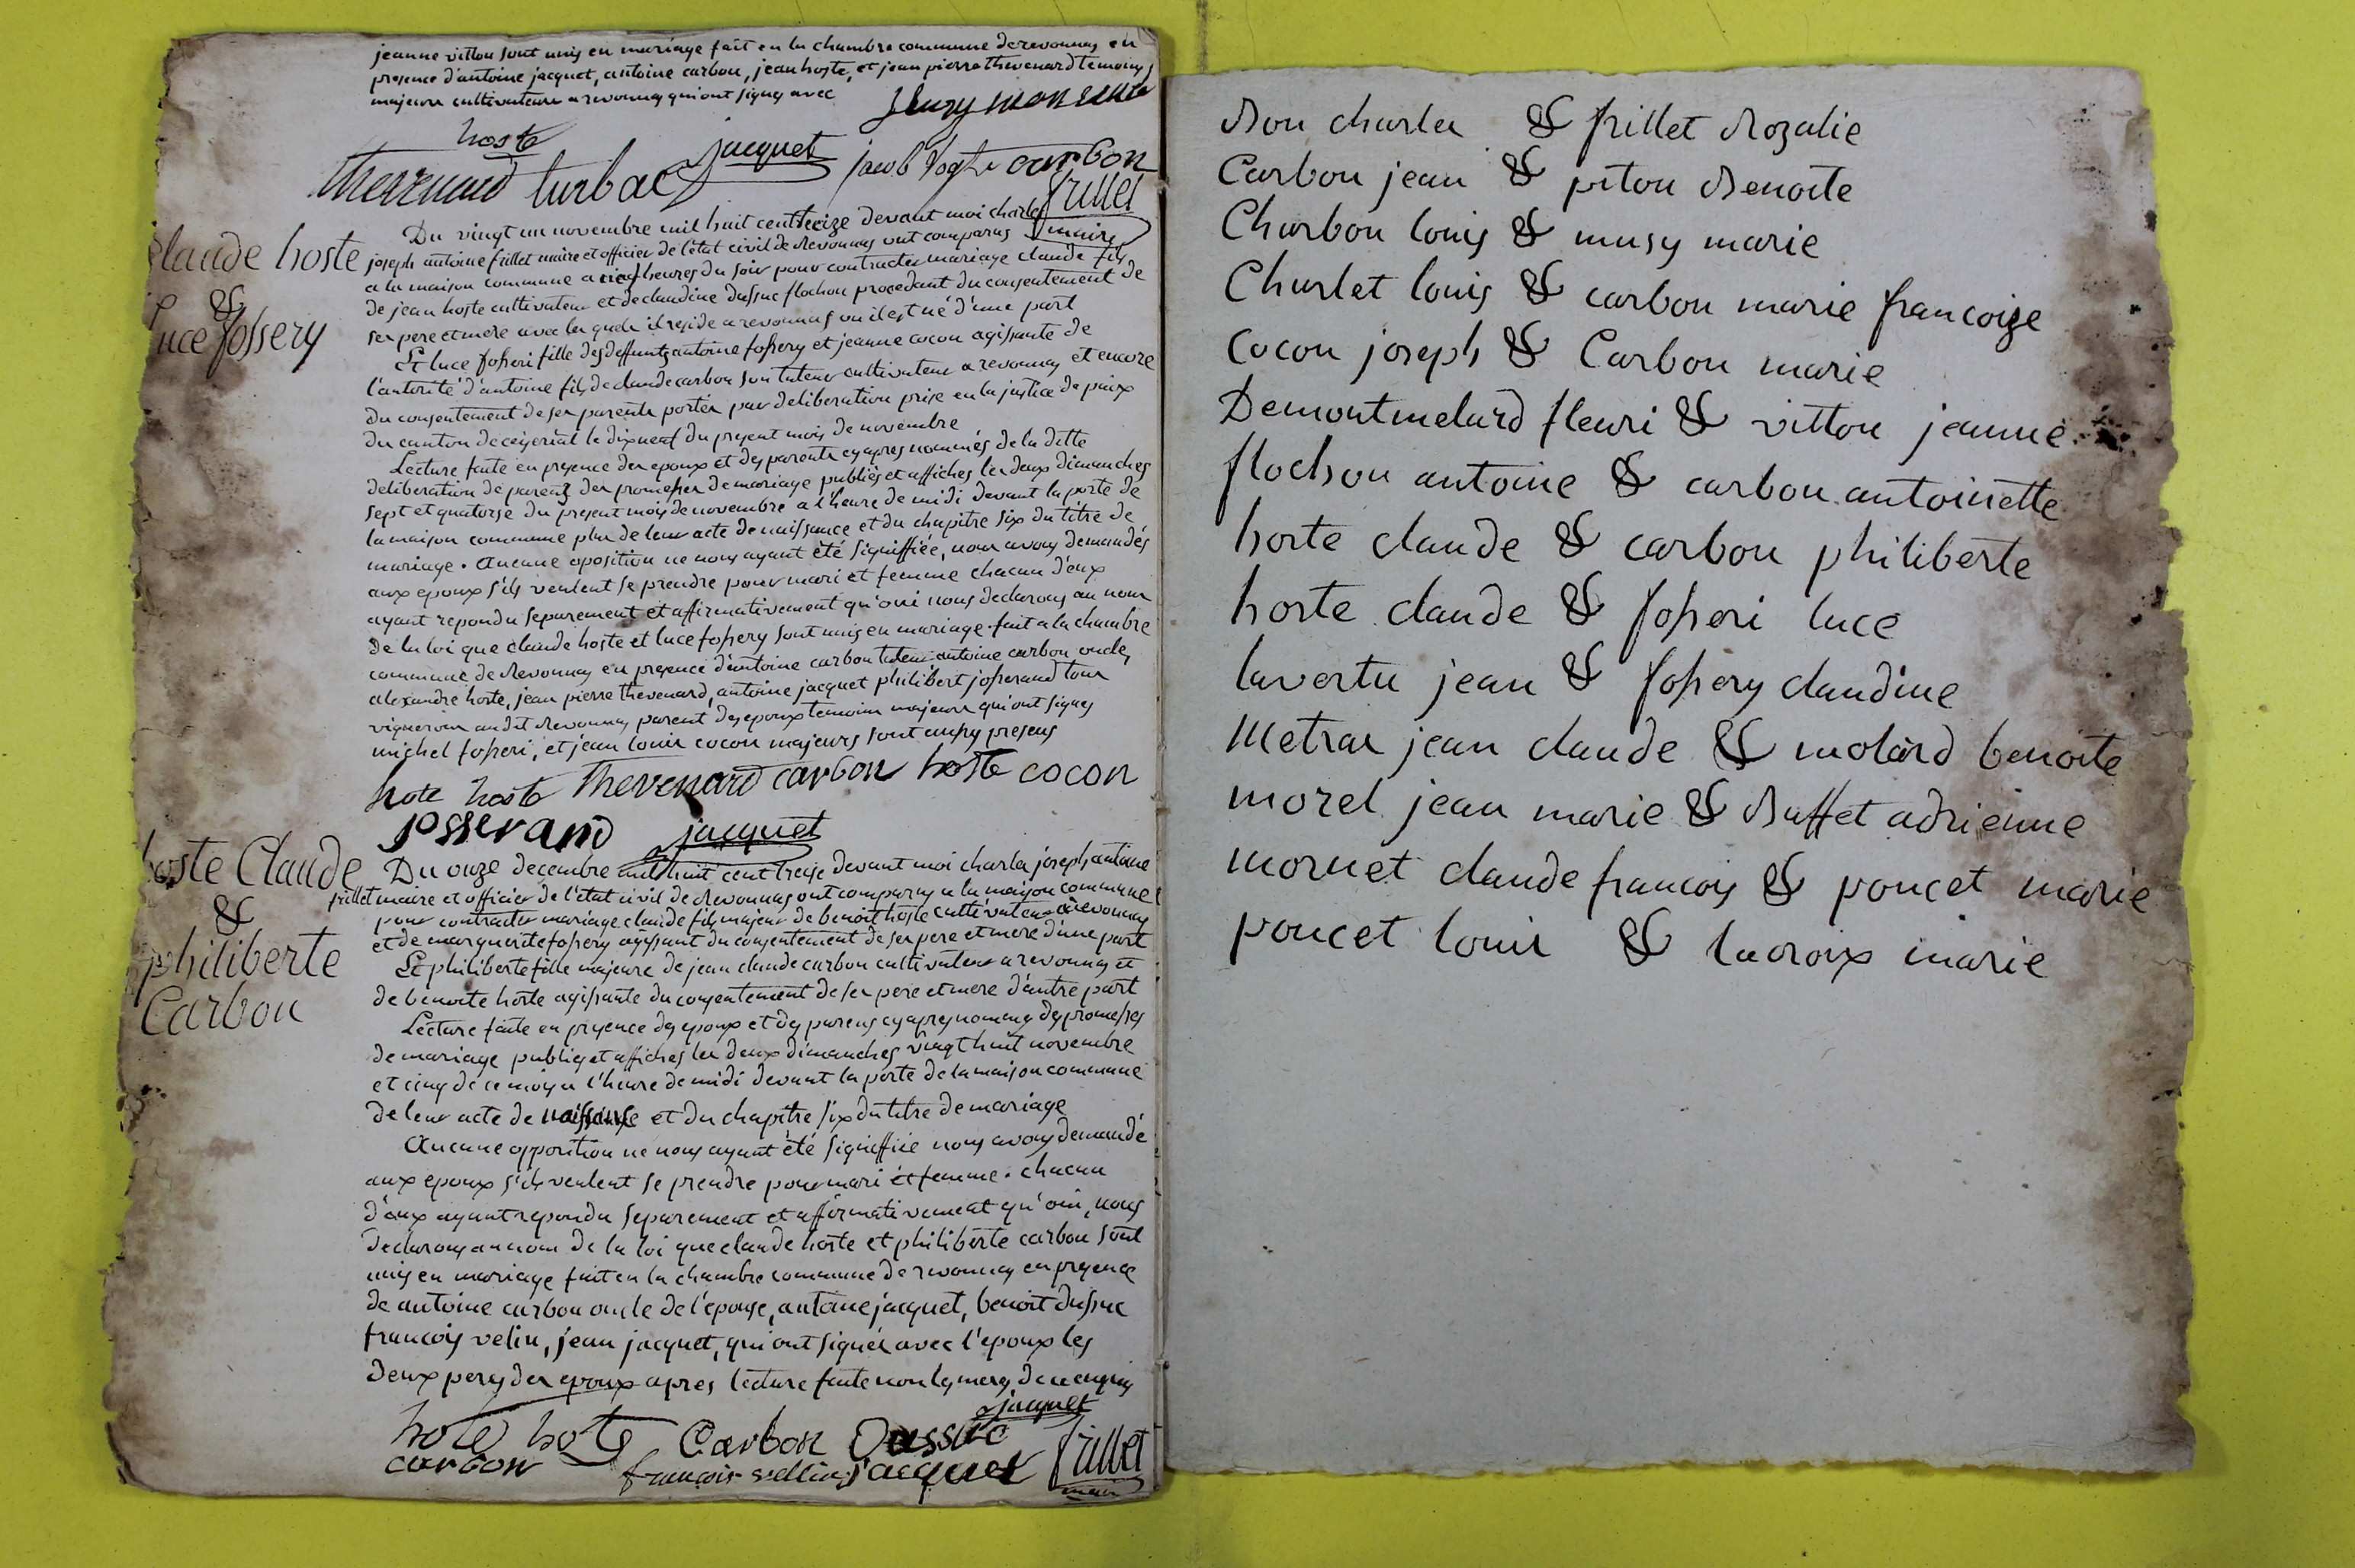 jeanne vitton sont unis en mariage fait en la chambre commune de revonnas en
presence d'antoine jacquet, antoine carbon, jean hoste, et jean pierre thevenard temoins
majeurs cultivateurs a revonnas qui ont signes avec
hoste
thevenard turbac jacquet jacob carbon
frillet
maire
Claude hoste
&
luce fossery
Du vingt un novembre mil huit cent treize devant moi charles
joseph antoine frillet maire et officier de l'état civil de Revonnas ont comparus
a la maison commune a cinq heures du soir pour contracter mariage claude fils
de jean hoste cultivateur et de claudine dussuc flochon procedant du consentement de
ses pere et mere avec les quels il reside a revonnas ou il est né d'une part
Et luce fosseri fille des deffunts antoine fossery et jeanne cocon agissante de
l'autorité d'antoine fils de claude carbon son tuteur cultivateur a revonnas et encore
du consentement de ses parents portés par deliberation prise en la justice de paix
du canton de ceyzeriat le dixneuf du present mois de novembre
Lecture faite en presence des epoux et des parents cy apres nommés de la ditte
deliberation de parents des promesses de mariage publiés et affichés les deux dimanches
sept et quatorze du present mois de novembre a l'heure de midi devant la porte de
la maison commune plus de leur acte de naissance et du chapitre six du titre de
mariage. Aucune oposition ne nous ayant été signiffiée, nous avons demandés
aux epoux s'ils veulent se prendre pour mari et femme chacun d'eux
ayant repondu separement et affirmativement qu'oui nous declarons au nom
de la loi que claude hoste et luce fossery sont unis en mariage. fait a la chambre
commune de Revonnas en presence d'antoine carbon tuteur antoine carbon oncle,
alexandre hoste, jean pierre thevenard, antoine jacquet philibert josserand tous
vignerons au dit Revonnas parent des epoux temoins majeurs qui ont signés
michel fosseri, et jean louis cocon majeurs sont aussy presens
hote hoste Thevenard carbon hoste cocon
josserand jacquet
hoste Claude
&
philiberte
Carbon
Du onze decembre mil huit cent treize devant moi charles joseph antoine
frillet maire et officier de l'état civil de Revonnas ont comparus a la maison commune
pour contracter mariage claude fils majeur de benoit hoste cultivateur a revonnas
et de marguerite fossery agissant du consentement de ses pere et mere d'une part
Et philiberte fille majeure de jean claude carbon cultivateur a revonnas et
de benoite hoste agissante du consentement de ses pere et mere d'autre part
Lecture faite en presence des epoux et des parens cy apres nommes des promesses
de mariage publies et affiches les deux dimanches vingt huit novembre
et cinq de ce mois a l'heure de midi devant la porte de la maison commune
de leur acte de naissance et du chapitre six du titre de mariage
Aucune opposition ne nous ayant été signiffiée nous avons demandé
aux epoux s'ils veulent se prendre pour mari et femme. chacun
d'eux ayant repondu separement et affirmativement qu'oui, nous
declarons au nom de la loi que claude hoste et philiberte carbon sont
unis en mariage fait en la chambre commune de revonnas en presence
de antoine carbon oncle de l'epouse, antoine jacquet, benoit dussuc
francois velin, jean jacquet, qui ont signés avec l'epoux les
deux peres des epoux apres lecture faite non les meres de ce enquis
jacquet
hote hote Carbon Dussuc
carbon francois vellin jacquet frillet
maire
Bon charles & frillet Rozalie
Carbon jean & piton Benoite
Charbon louis & musy marie
Charlet louis & carbon marie francoize
Cocon joseph & Carbon marie
Demontmelard fleuri & vitton jeanne
flochon antoine & carbon antoinette
hoste claude & carbon philiberte
hoste claude & fosseri luce
lavertu jean & fossery claudine
Metras jean claude & molard benoite
morel jean marie & Buffet adrienne
mornet claude francois & poncet marie
poncet louis & lacroix marie